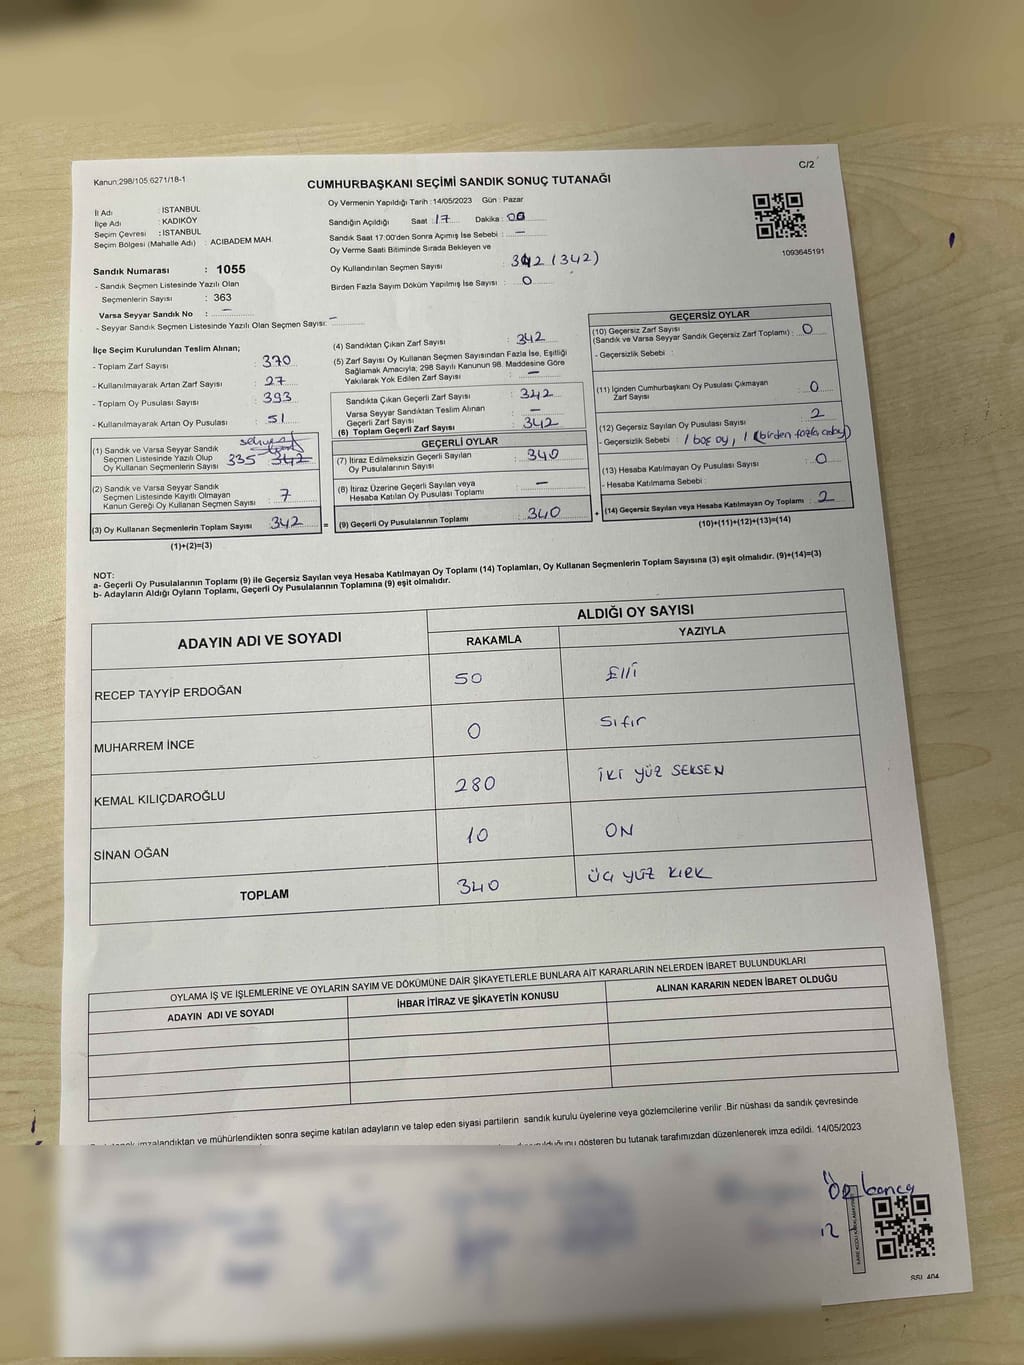 Kanun:298/105.6271/18-1
C/2
CUMHURBAŞKANI SEÇİMİ SANDIK SONUÇ TUTANAĞI
İl Adı : İSTANBUL
İlçe Adı : KADIKÖY
Seçim Çevresi : İSTANBUL
Seçim Bölgesi (Mahalle Adı) : ACIBADEM MAH.
Sandık Numarası : 1055
- Sandık Seçmen Listesinde Yazılı Olan
Seçmenlerin Sayısı : 363
Varsa Seyyar Sandık No : —
- Seyyar Sandık Seçmen Listesinde Yazılı Olan Seçmen Sayısı: —
Oy Vermenin Yapıldığı Tarih :14/05/2023 Gün : Pazar
Sandığın Açıldığı Saat : 17 Dakika : 00
Sandık Saat 17:00'den Sonra Açımış İse Sebebi : —
Oy Verme Saati Bitiminde Sırada Bekleyen ve
Oy Kullandırılan Seçmen Sayısı : 342 (342)
Birden Fazla Sayım Döküm Yapılmış İse Sayısı : 0
1093645191
İlçe Seçim Kurulundan Teslim Alınan;
- Toplam Zarf Sayısı : 370
- Kullanılmayarak Artan Zarf Sayısı : 27
- Toplam Oy Pusulası Sayısı : 393
- Kullanılmayarak Artan Oy Pusulası : 51
(1) Sandık ve Varsa Seyyar Sandık
Seçmen Listesinde Yazılı Olup
Oy Kullanan Seçmenlerin Sayısı 335 342
(2) Sandık ve Varsa Seyyar Sandık
Seçmen Listesinde Kayıtlı Olmayan
Kanun Gereği Oy Kullanan Seçmen Sayısı : 7
(3) Oy Kullanan Seçmenlerin Toplam Sayısı : 342
(1)+(2)=(3)
=
(4) Sandıktan Çıkan Zarf Sayısı : 342
(5) Zarf Sayısı Oy Kullanan Seçmen Sayısından Fazla İse, Eşitliği
Sağlamak Amacıyla; 298 Sayılı Kanunun 98. Maddesine Göre
Yakılarak Yok Edilen Zarf Sayısı : —
Sandıkta Çıkan Geçerli Zarf Sayısı : 342
Varsa Seyyar Sandıktan Teslim Alınan
Geçerli Zarf Sayısı : —
(6) Toplam Geçerli Zarf Sayısı : 342
GEÇERLİ OYLAR
(7) İtiraz Edilmeksizin Geçerli Sayılan
Oy Pusulalarının Sayısı : 340
(8) İtiraz Üzerine Geçerli Sayılan veya
Hesaba Katılan Oy Pusulası Toplamı : —
(9) Geçerli Oy Pusulalarının Toplamı : 340
+
GEÇERSİZ OYLAR
(10) Geçersiz Zarf Sayısı
(Sandık ve Varsa Seyyar Sandık Geçersiz Zarf Toplamı) : 0
- Geçersizlik Sebebi :
(11) İçinden Cumhurbaşkanı Oy Pusulası Çıkmayan
Zarf Sayısı : 0
(12) Geçersiz Sayılan Oy Pusulası Sayısı : 2
- Geçersizlik Sebebi : 1 boş oy, 1 (birden fazla aday)
(13) Hesaba Katılmayan Oy Pusulası Sayısı : 0
- Hesaba Katılmama Sebebi :
(14) Geçersiz Sayılan veya Hesaba Katılmayan Oy Toplamı : 2
(10)+(11)+(12)+(13)=(14)
NOT:
a- Geçerli Oy Pusulalarının Toplamı (9) ile Geçersiz Sayılan veya Hesaba Katılmayan Oy Toplamı (14) Toplamları, Oy Kullanan Seçmenlerin Toplam Sayısına (3) eşit olmalıdır. (9)+(14)=(3)
b- Adayların Aldığı Oyların Toplamı, Geçerli Oy Pusulalarının Toplamına (9) eşit olmalıdır.
ADAYIN ADI VE SOYADI
ALDIĞI OY SAYISI
RAKAMLA YAZIYLA
RECEP TAYYİP ERDOĞAN 50 Elli
MUHARREM İNCE 0 Sıfır
KEMAL KILIÇDAROĞLU 280 İKİ YÜZ SEKSEN
SİNAN OĞAN 10 ON
TOPLAM 340 ÜÇ YÜZ KIRK
OYLAMA İŞ VE İŞLEMLERİNE VE OYLARIN SAYIM VE DÖKÜMÜNE DAİR ŞİKAYETLERLE BUNLARA AİT KARARLARIN NELERDEN İBARET BULUNDUKLARI
ADAYIN ADI VE SOYADI İHBAR İTİRAZ VE ŞİKAYETİN KONUSU ALINAN KARARIN NEDEN İBARET OLDUĞU
imzalandıktan ve mühürlendikten sonra seçime katılan adayların ve talep eden siyasi partilerin sandık kurulu üyelerine veya gözlemcilerine verilir .Bir nüshası da sandık çevresinde
gösteren bu tutanak tarafımızdan düzenlenerek imza edildi. 14/05/2023